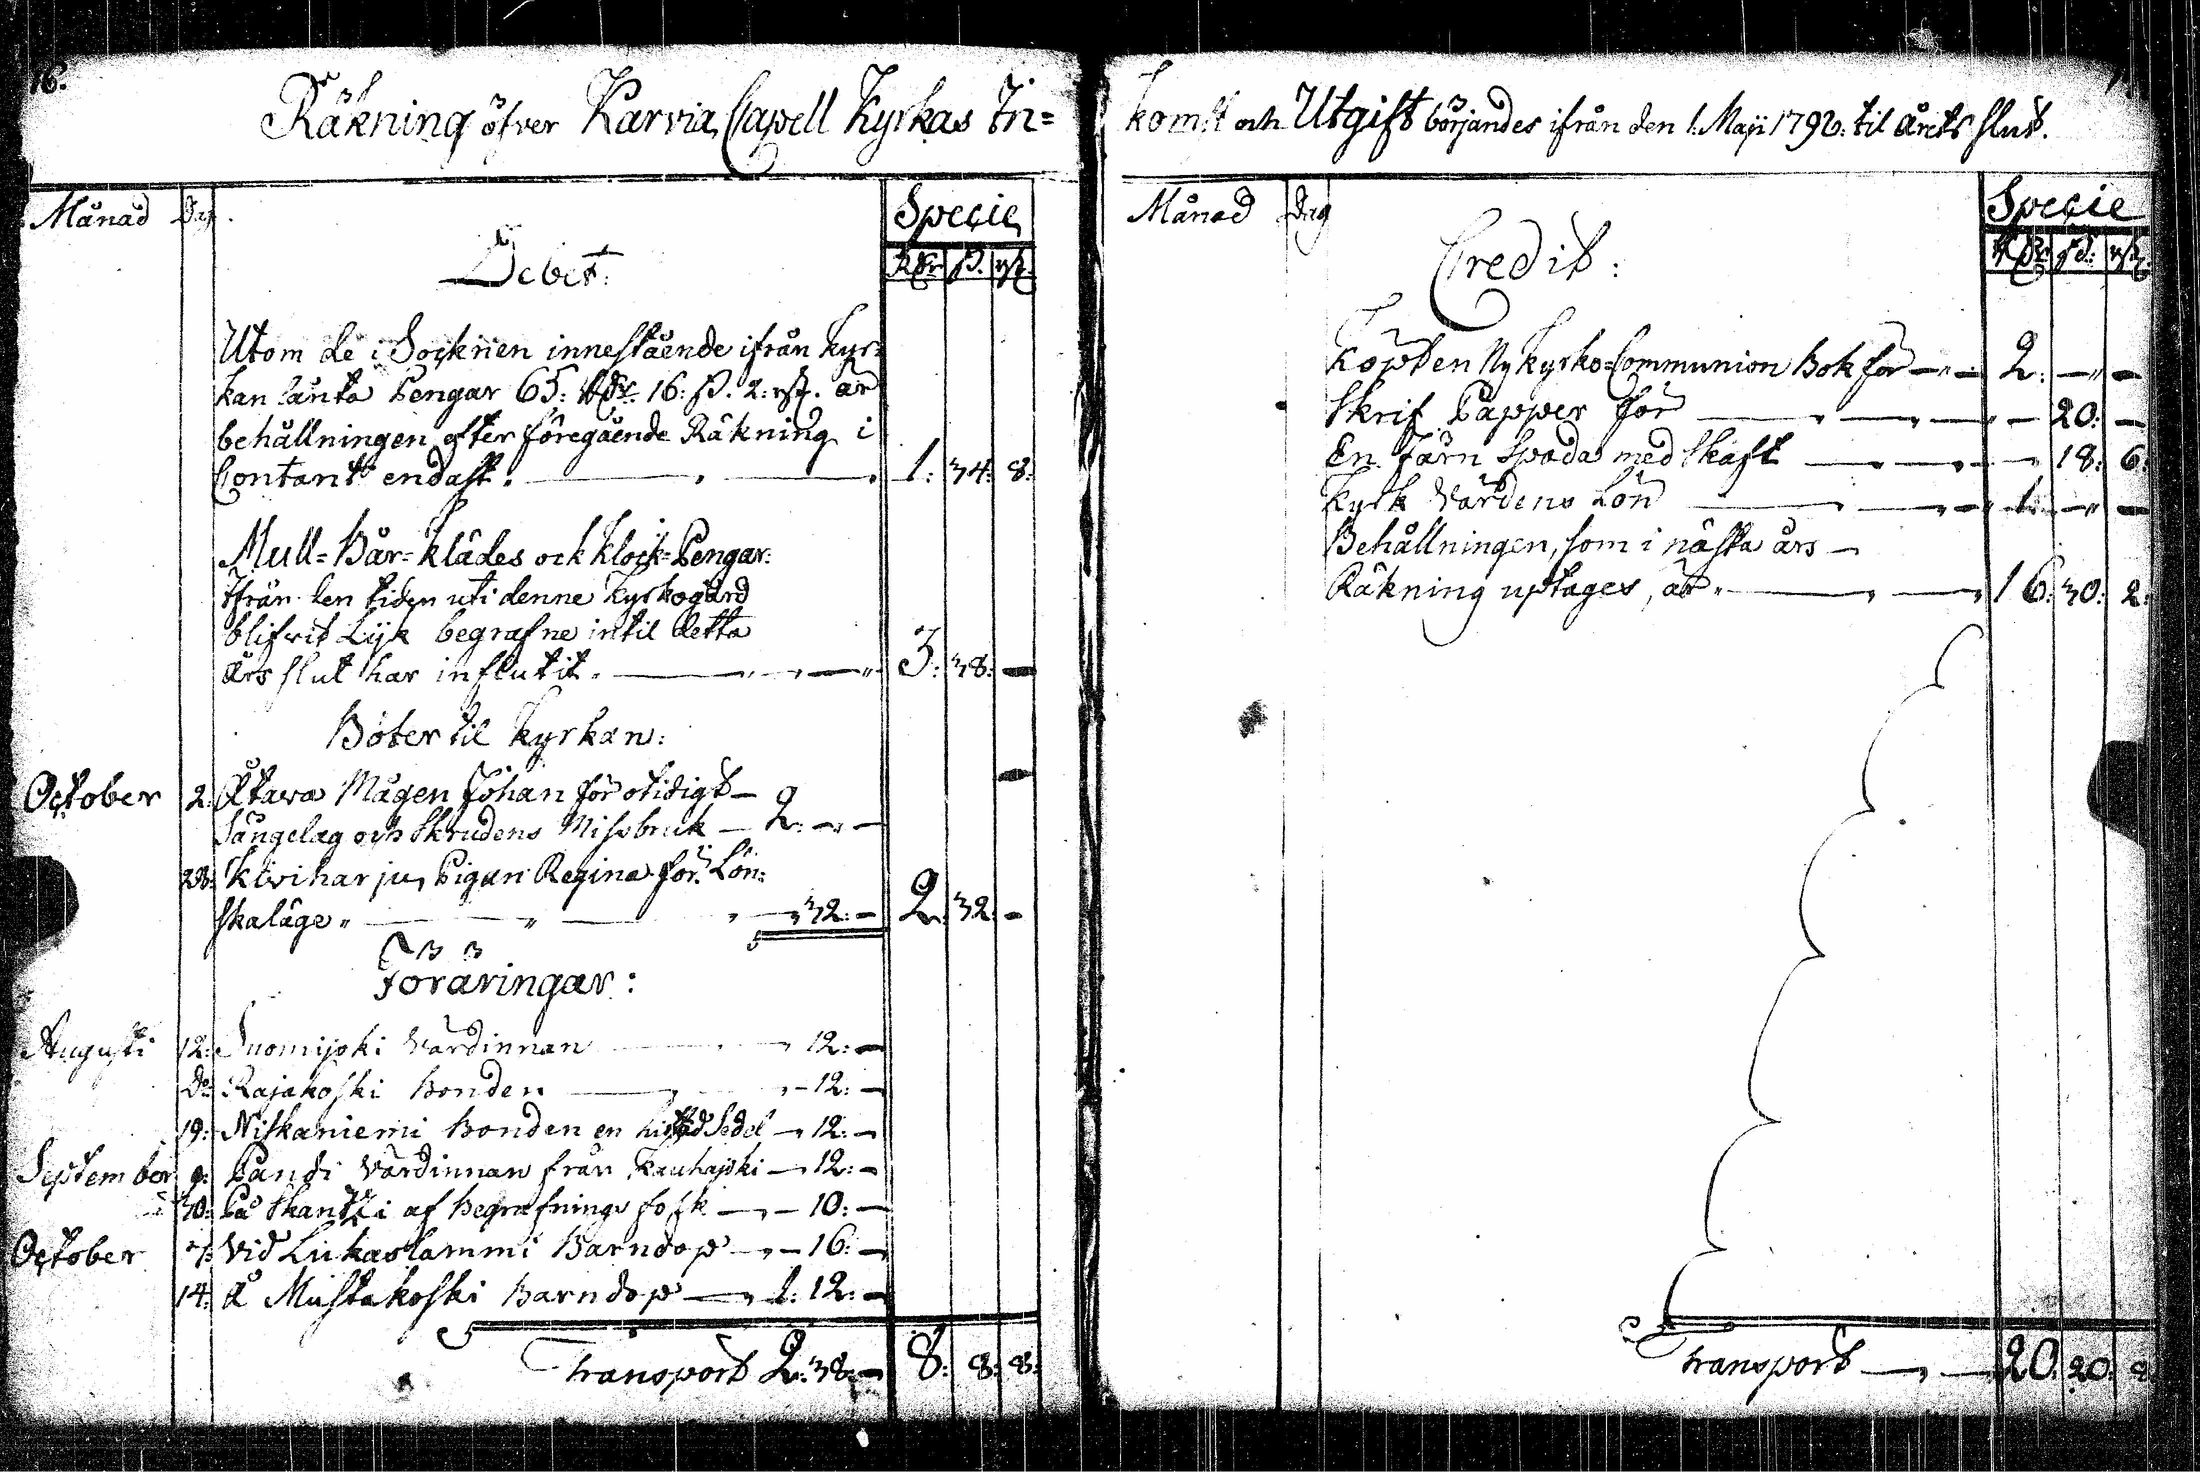 16.
Räkning öfver Karvia Capell Kyrkas In=
Månad Dag. Specie
Debet: Rdr. ß. rst.
Utom de i Socknen innestående ifrån Kyr=
kan lånta Pengar 65: Rdr. 16: ß. 2: rst. är
behållningen efter föregående Räkning i
Contant endast. 1: 34: 8:
Mull=Bår=klädes ock Klock=Pengar:
Ifrån den tiden uti denne Kyrkogård
blifvit Lijk begrafne intil detta
Års slut har influtit. 3: 38: —
Böter til Kyrkan:
October 2: Åtava Mågen Johan för otidigt
Sängelag och Skrudens Missbruk — 2: — —
28: Kiviharju Pigan Regina för Lön=
skaläge 32: — 2: 32: —
Föräringar:
Augusti 12: Suomijoki Värdinnan 12: —
do Rajakoski Bonden 12: —
19: Niskaniemi Bonden en Sedel 12: —
September 9: Pandi Värdinnan från Kauhajoki — 12: —
30: På Skantzi af Begrafnings folk — 10: —
October 7: Vid Lukaslammi Barndop — 16: —
14: Å Mustakoski Barndop — 1: 12: —
Transport 2: 38: — 8: 8: 8:
komst och Utgift börjandes ifrån den 1. Maji 1792: til Årets slut.
Månad Dag Specie
Credit: Rdr. ß: rst.
Köpt en Ny Kyrko=Communion Bok för 2: — —
Skrif Papper för — 20: —
En Järn Spada med Skaft — 18: 6:
Kyrk Värdens Lön 1: — —
Behållningen, som i nästa års —
Räkning uptages, är 16: 30: 2:
Transport 20: 20: 8